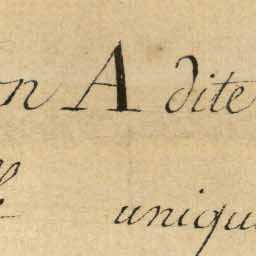 n A dite
uniqu